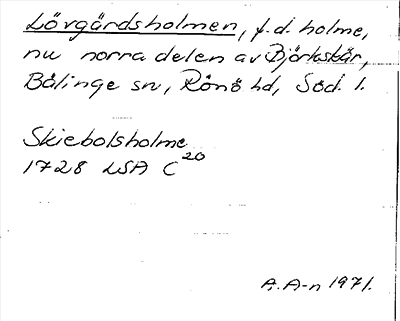 Lövgärdsholmen, f.d. holme,
nu norra delen av Björkskär,
Bälinge sn, Rönö hd, Söd. l.
Skiebolsholme
1728 LSA C20
A.A-n 1971.